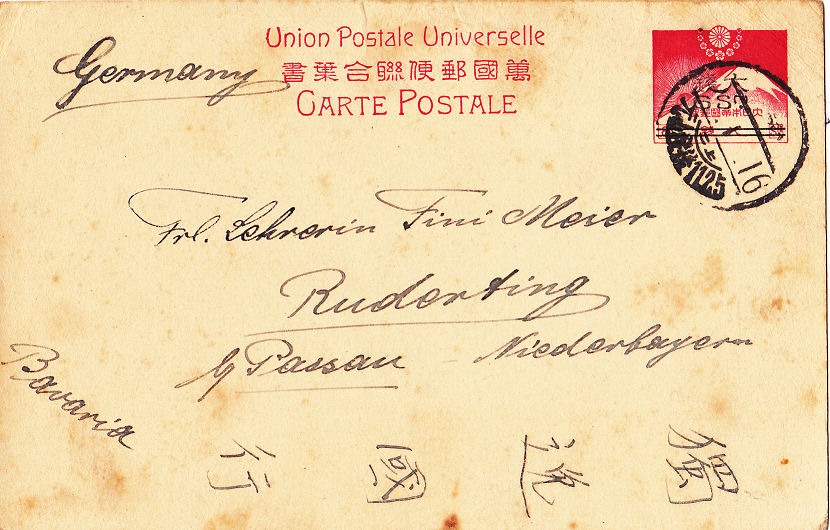 Union Postale Universelle
萬國郵便聯合葉書
CARTE POSTALE
Germany
Frl. Lehrerin Fini Meier
Ruderting
b/ Passau - Niederbayern
Bavaria
獨逸國行
16